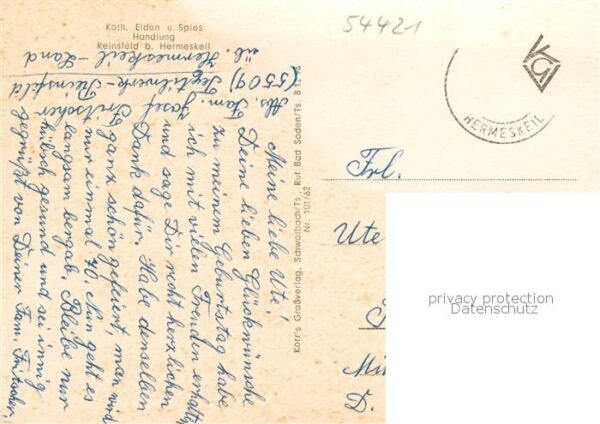 Kath. Eiden u. Spies
Handlung
Reinsfeld b. Hermeskeil
54421
HERMESKEIL
Abs. Fam. Josef Fritscher
(5509) Textilwerk-Reinsfeld
üb. Hermeskeil-Land
Meine liebe Ute!
Deine lieben Glückwünsche
zu meinem Geburtstag habe
ich mit vielen Freuden erhalten
und sage Dir recht herzlichen
Dank dafür. Habe denselben
ganz schön gefeiert, man wird
nur einmal 70. Nun geht es
langsam bergab. Bleibe nur
hübsch gesund und sei innig
gegrüßt von Deiner Fam. Fritscher.
Korr's Großverlag, Schwalbach/Ts., Ruf Bad Soden/Ts. 8
Nr. 101/62
Frl.
Ute
privacy protection
Datenschutz